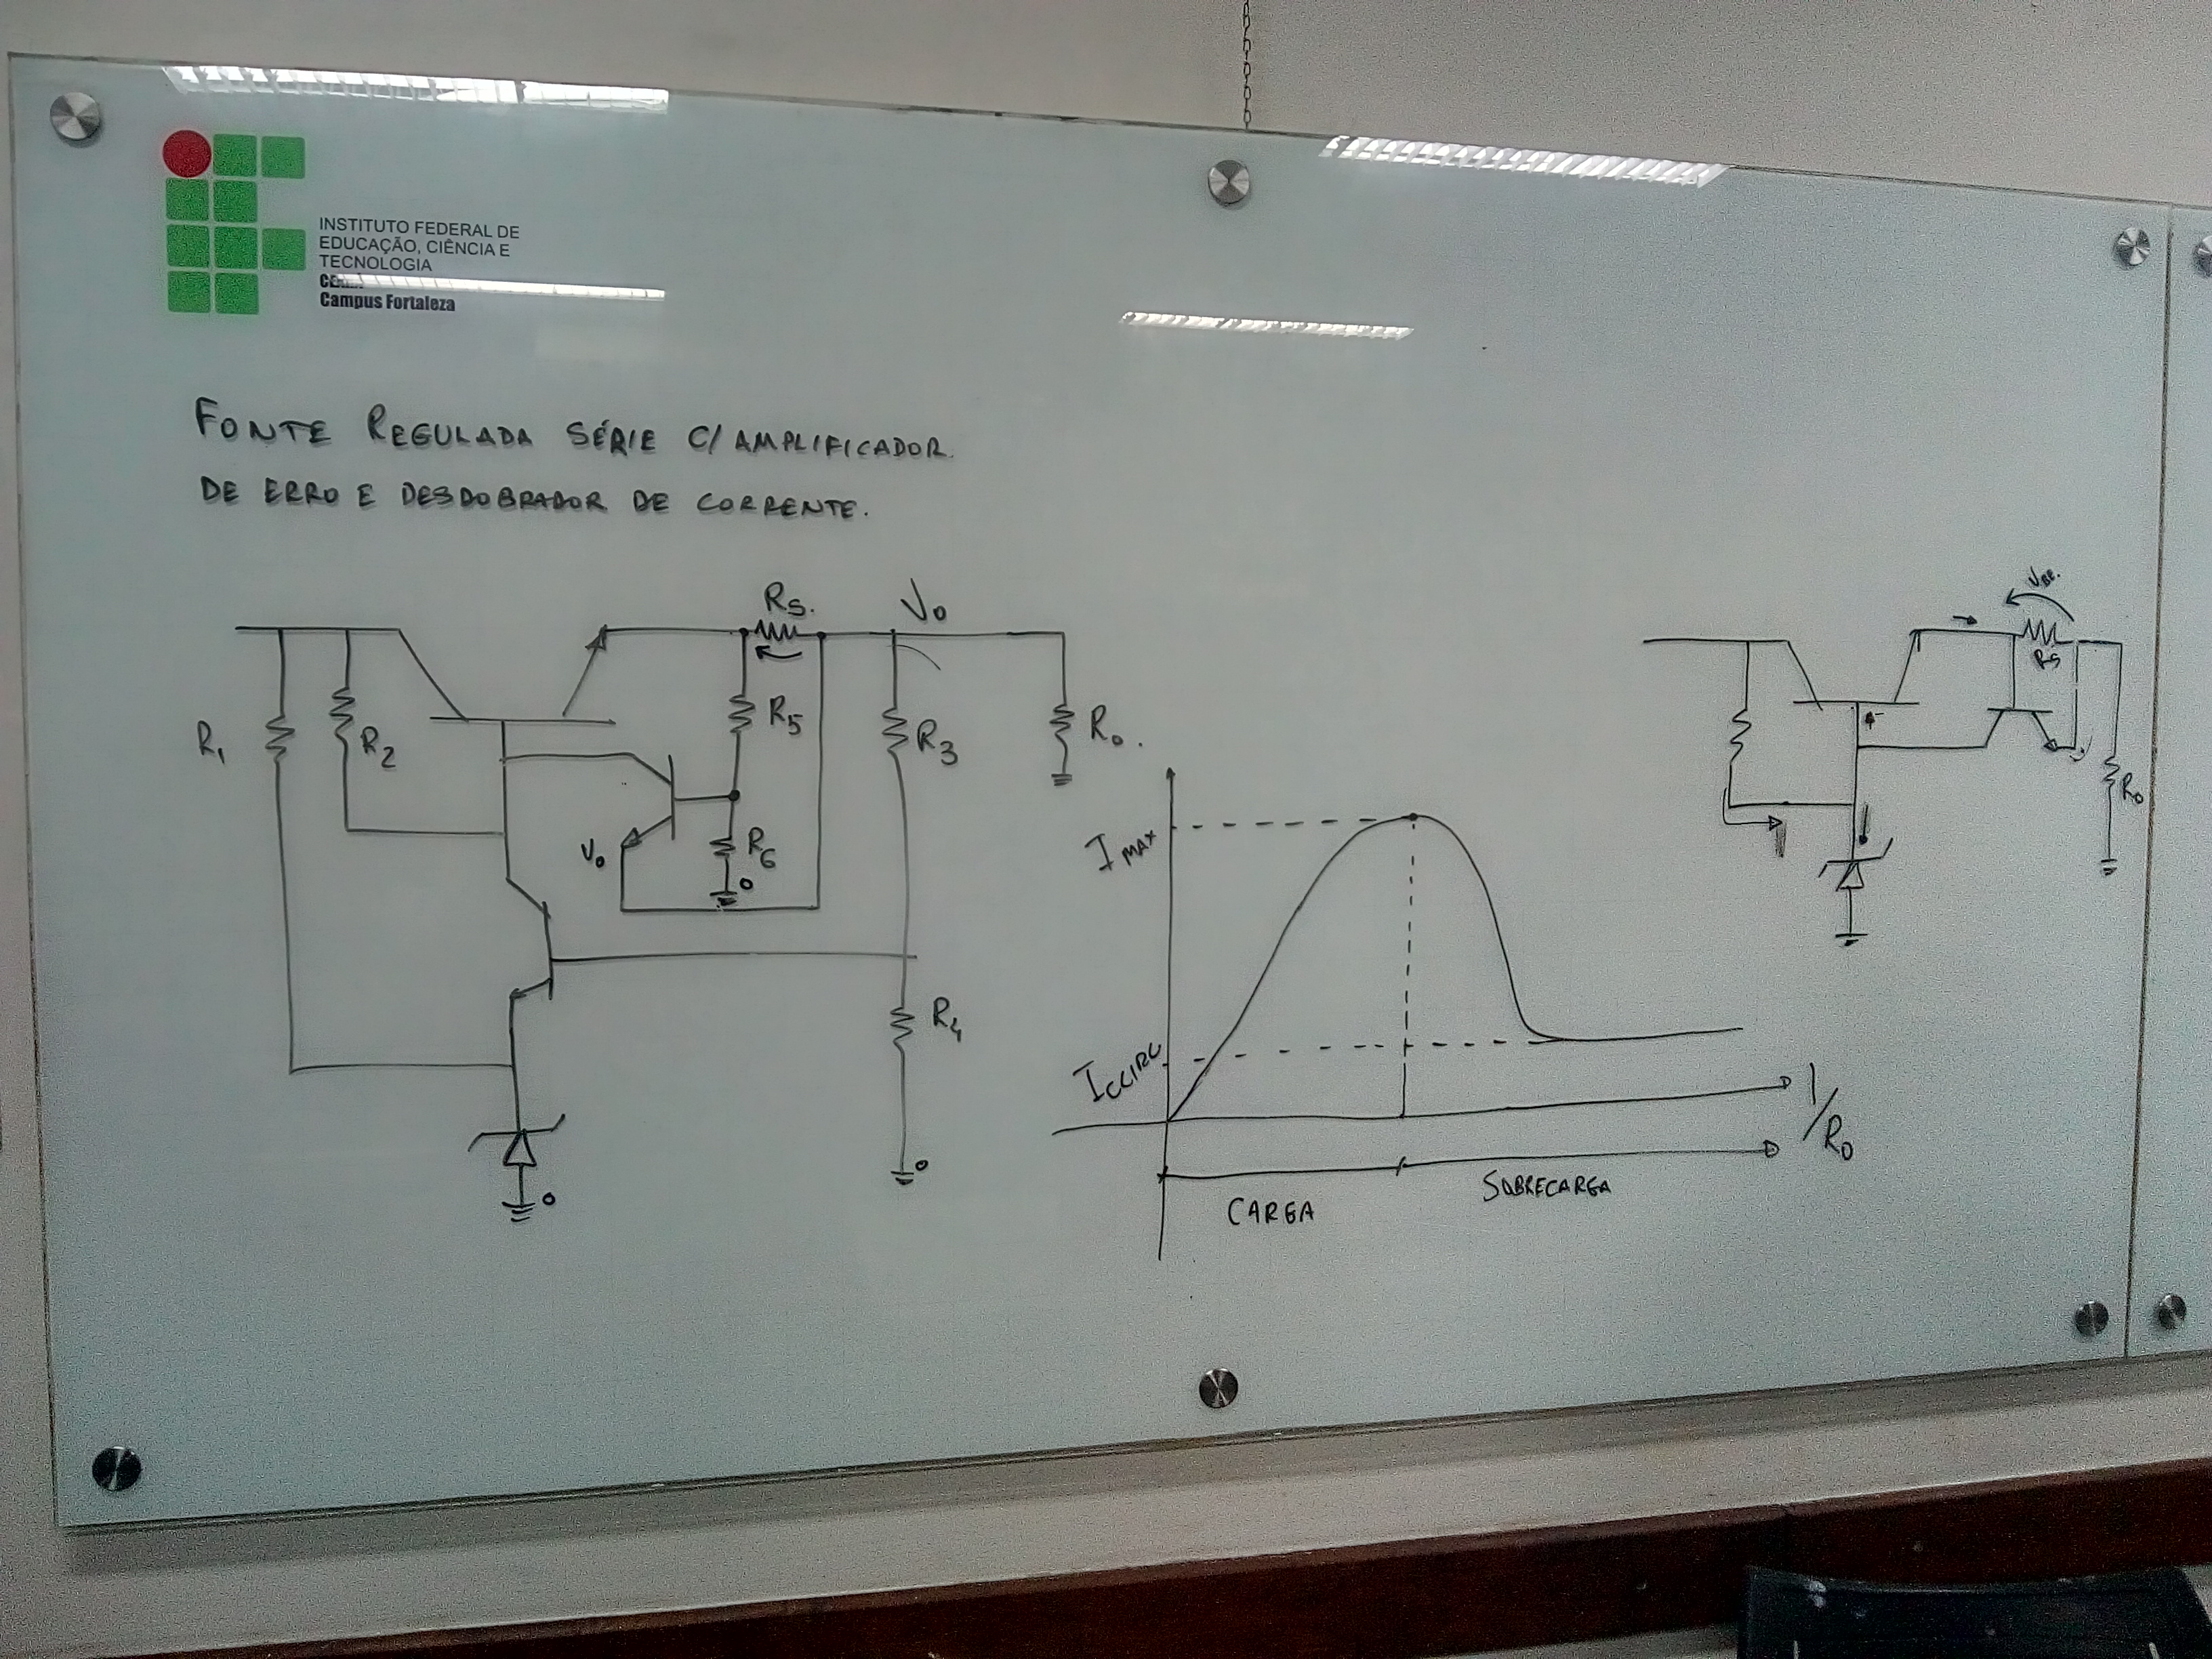 INSTITUTO FEDERAL DE
EDUCAÇÃO, CIÊNCIA E
TECNOLOGIA
Campus Fortaleza
FONTE REGULADA SÉRIE C/ AMPLIFICADOR.
DE ERRO E DESDOBRADOR DE CORRENTE.
RS.
Vo
R1
R2
R5
R3
Ro.
Vo
R6
o
R4
o
o
IMAX
ICCIRC
1/Ro
CARGA
SOBRECARGA
VBE.
RS
Ro